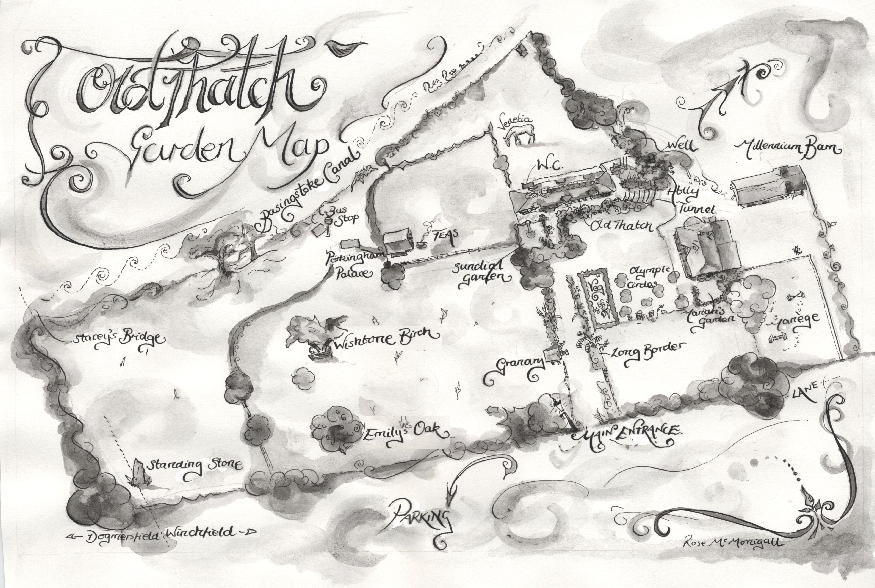 Old Thatch
Garden Map
Basingstoke Canal
Bus
Stop
Venetia
W.C.
Well
Millennium Barn
Tunnel
Old Thatch
TEAS
Porkingham
Palace
Sundial
Garden
Olympic
Circles
Garden
Stacey's Bridge
Wishbone Birch
Granary
Long Border
Emily's Oak
MAIN ENTRANCE
LANE
Standing Stone
PARKING
Dogmersfield
Winchfield
Rose McMonigall